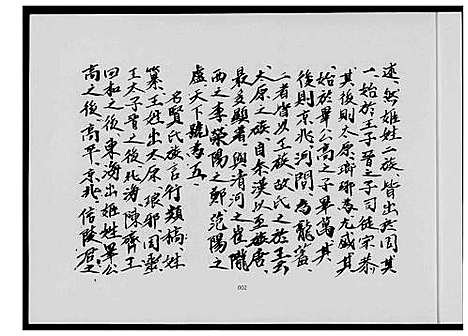 述然姬姓二族皆出於周其
一始於王子晉之子司徒宗恭
其後則太原瑯琊為尤盛其
始於畢公高之子畢萬其
後則京兆河間為
二者皆以王族故氏之於王
太原之族自秦漢以至於唐
最多顯者與清河之崔隴
西之李滎陽之鄭范陽之
盧天下號為五
名賢氏族言行類稿姓
纂王姓出太原琅邪周靈
王太子晉之後北海陳齊王
田和之後東海出姬姓畢公
高之後高平京兆信陵君之
002